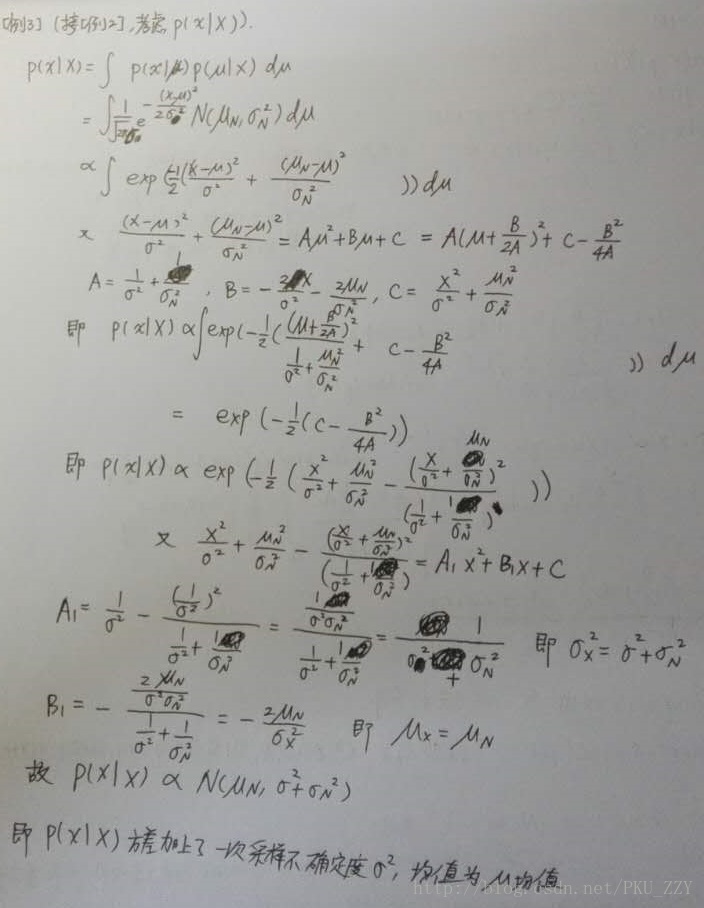 [例3] (接[例2], 考虑 p(x|X)).
p(x|X) = ∫ p(x|μ) p(μ|X) dμ
= ∫ 1/√(2πσ) e^(-(x-μ)²/2σ²) N(μ_N, σ_N²) dμ
∝ ∫ exp(-1/2((x-μ)²/σ² + (μ_N-μ)²/σ_N² )) dμ
又 (x-μ)²/σ² + (μ_N-μ)²/σ_N² = Aμ² + Bμ + C = A(μ + B/2A)² + C - B²/4A
A = 1/σ² + 1/σ_N² , B = - 2x/σ² - 2μ_N/σ_N² , C = x²/σ² + μ_N²/σ_N²
即 p(x|X) ∝ ∫ exp(-1/2( (μ + B/2A)²/(1/σ² + μ_N²/σ_N²) + C - B²/4A )) dμ
= exp(-1/2(C - B²/4A))
即 p(x|X) ∝ exp(-1/2( x²/σ² + μ_N²/σ_N² - (x/σ² + μ_N/σ_N²)²/(1/σ² + 1/σ_N²) ))
又 x²/σ² + μ_N²/σ_N² - (x/σ² + μ_N/σ_N²)²/(1/σ² + 1/σ_N²) = A₁x² + B₁x + C
A₁ = 1/σ² - (1/σ²)²/(1/σ² + 1/σ_N²) = (1/σ²σ_N²)/(1/σ² + 1/σ_N²) = 1/(σ² + σ_N²) 即 σ_x² = σ² + σ_N²
B₁ = - (2μ_N/σ²σ_N²)/(1/σ² + 1/σ_N²) = - 2μ_N/σ_x² 即 μ_x = μ_N
故 p(x|X) ∝ N(μ_N, σ² + σ_N²)
即 p(x|X) 方差加上了一次采样不确定度 σ², 均值为 μ 均值
http://blog.csdn.net/PKU_ZZY